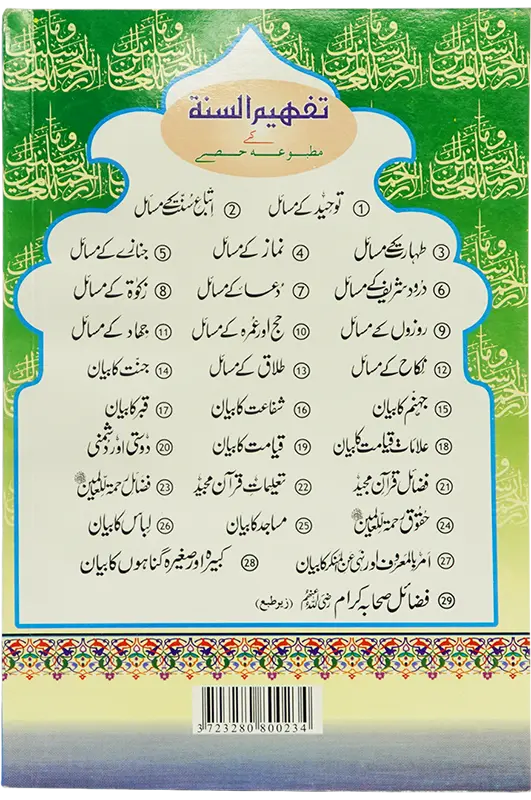 تفہیم السنۃ
کے
مطبوعہ حصے
① توحید کے مسائل ② اتباعِ سُنّت کے مسائل
③ طہارت کے مسائل ④ نماز کے مسائل ⑤ جنازے کے مسائل
⑥ درود شریف کے مسائل ⑦ دُعا کے مسائل ⑧ زکوٰۃ کے مسائل
⑨ روزوں کے مسائل ⑩ حج اور عمرہ کے مسائل ⑪ جہاد کے مسائل
⑫ نکاح کے مسائل ⑬ طلاق کے مسائل ⑭ جنت کا بیان
⑮ جہنم کا بیان ⑯ شفاعت کا بیان ⑰ قبر کا بیان
⑱ علاماتِ قیامت کا بیان ⑲ قیامت کا بیان ⑳ دوستی اور دشمنی
㉑ فضائل قرآن مجید ㉒ تعلیماتِ قرآن مجید ㉓ فضائل رحمۃ للعالمین ﷺ
㉔ حقوق رحمۃ للعالمین ﷺ ㉕ مساجد کا بیان ㉖ لباس کا بیان
㉗ امر بالمعروف اور نہی عن المنکر کا بیان ㉘ کبیرہ اور صغیرہ گناہوں کا بیان
㉙ فضائل صحابہ کرام رضی اللہ عنہم (زیر طبع)
3723280800234
وما أرسلناك إلا رحمة للعالمين